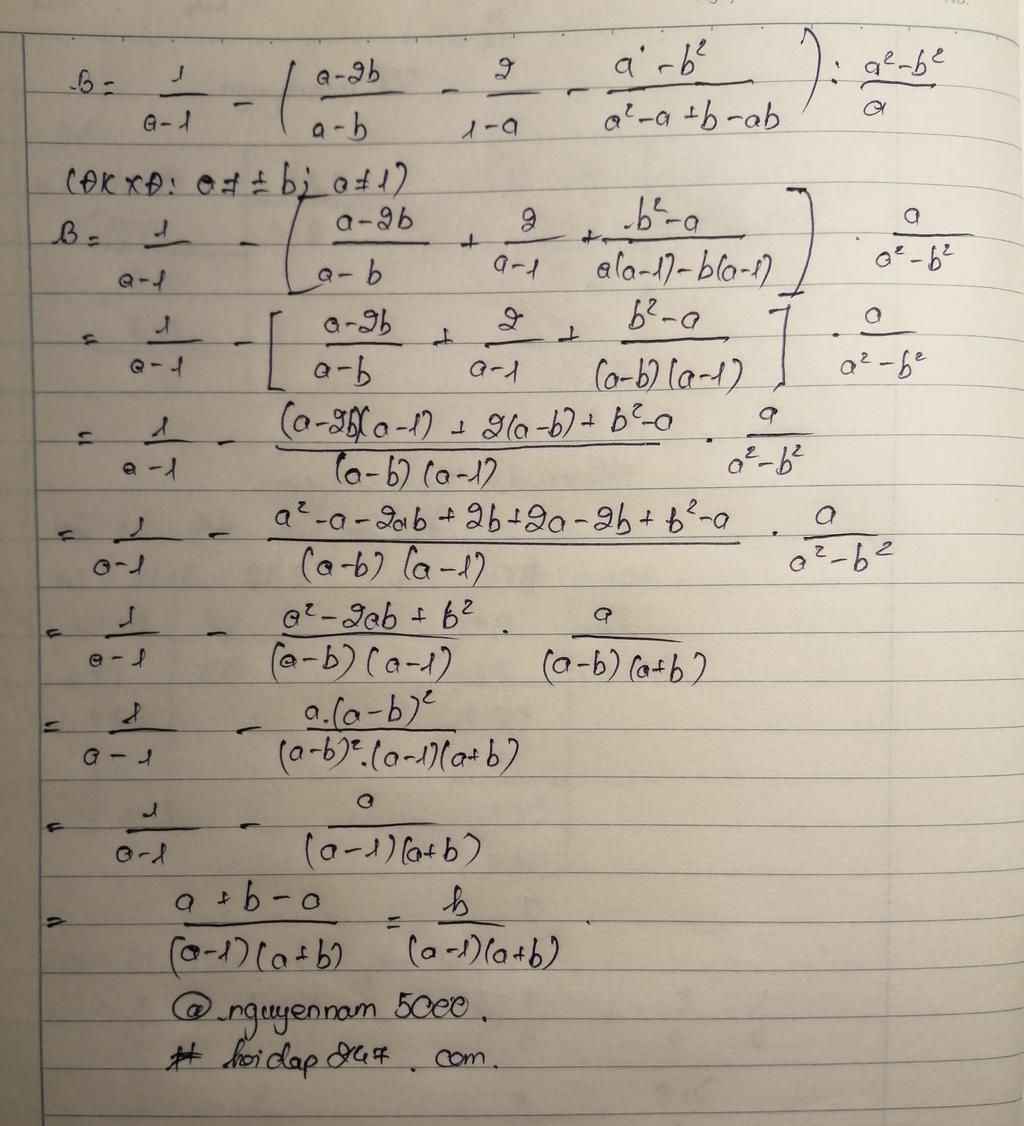 B = 1/(a-1) - ( (a-2b)/(a-b) - 2/(1-a) - (a - b²)/(a²-a+b-ab) ) : (a²-b²)/a
(ĐKXĐ: a ≠ ± b; a ≠ 1)
B = 1/(a-1) - [ (a-2b)/(a-b) + 2/(a-1) + (b²-a)/(a(a-1)-b(a-1)) ] . a/(a²-b²)
= 1/(a-1) - [ (a-2b)/(a-b) + 2/(a-1) + (b²-a)/((a-b)(a-1)) ] . a/(a²-b²)
= 1/(a-1) - ((a-2b)(a-1) + 2(a-b) + b²-a)/((a-b)(a-1)) . a/(a²-b²)
= 1/(a-1) - (a²-a-2ab+2b+2a-2b+b²-a)/((a-b)(a-1)) . a/(a²-b²)
= 1/(a-1) - (a²-2ab+b²)/((a-b)(a-1)) . a/((a-b)(a+b))
= 1/(a-1) - (a.(a-b)²)/((a-b)².(a-1)(a+b))
= 1/(a-1) - a/((a-1)(a+b))
= (a+b-a)/((a-1)(a+b)) = b/((a-1)(a+b)) .
@nguyennam 5000.
# hoidap247 . com.